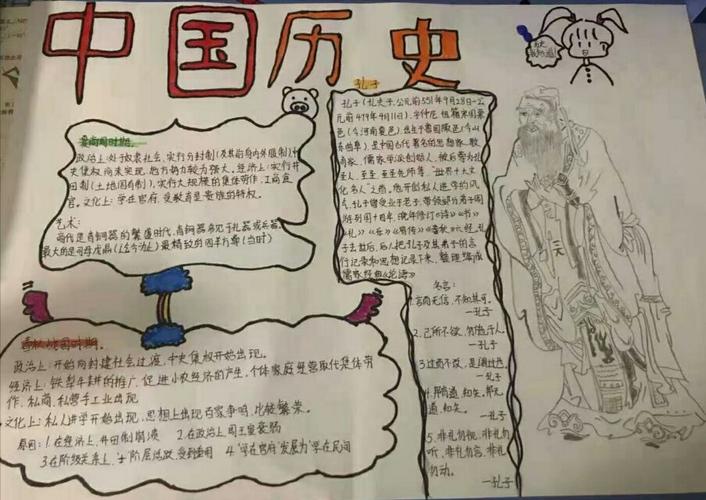 中国历史
夏商周时期。
政治上:处于奴隶社会,实行分封制
史集权尚未実现,地方势力较为强大。经济上:实行井
田制(土地国有制),实行大规模的集体劳作,工商食
官。文化上:学在官府,受教育是贵族的特权。
艺术:
商代是青铜器的繁盛时代,青铜器多见于礼器或兵器,
最大的是司母戊鼎(迄今为止)最精致的四羊方尊(当时)
春秋战国时期。
政治上:开始向封建社会过渡,中史集权开始出现。
经济上:铁犁牛耕的推广,促进小农经济的产生,个体家庭经营取代集体劳
作,私商,私营手工业出现
文化上:私人讲学开始出现,思想上出现百家争鸣,比较繁荣。
原因:1.在经济上,井田制崩溃 2.在政治上周王室衰弱
3.在阶级关系上,士阶层活跃,受到重用 4.“学在官府”发展为“学在民间
孔子
孔子(孔夫子,公元前551年9月28日-公
元前479年4月11日),字仲尼,祖籍宋国栗
邑(今河南夏邑),出生于鲁国陬邑(今山
东曲阜),是中国古代著名的思想家、教
育家,儒家学派创始人,被后世为孔
圣人,至圣,至圣先师等,“世界十大文
化名人”之首,他开创私人讲学的风
气,孔子曾受业于老子,带领部分弟子周
游列国十四年,晚年修订《诗》《书》
《礼》《乐》《易传》《春秋》六经,孔
子去世后,后人把孔子及其弟子的言
行记录和思想记录下来,整理编成
儒家经典《论语》
名言:
1.言而无信,不知其可。
—孔子
2.己所不欲,勿施于人。
—孔子
3.过而不改,是谓过也
—孔子
4.邦有道,知矣,邦无
道,知矣。
—孔子
5.非礼勿视,非礼勿
听,非礼勿言,非礼
勿动。
—孔子